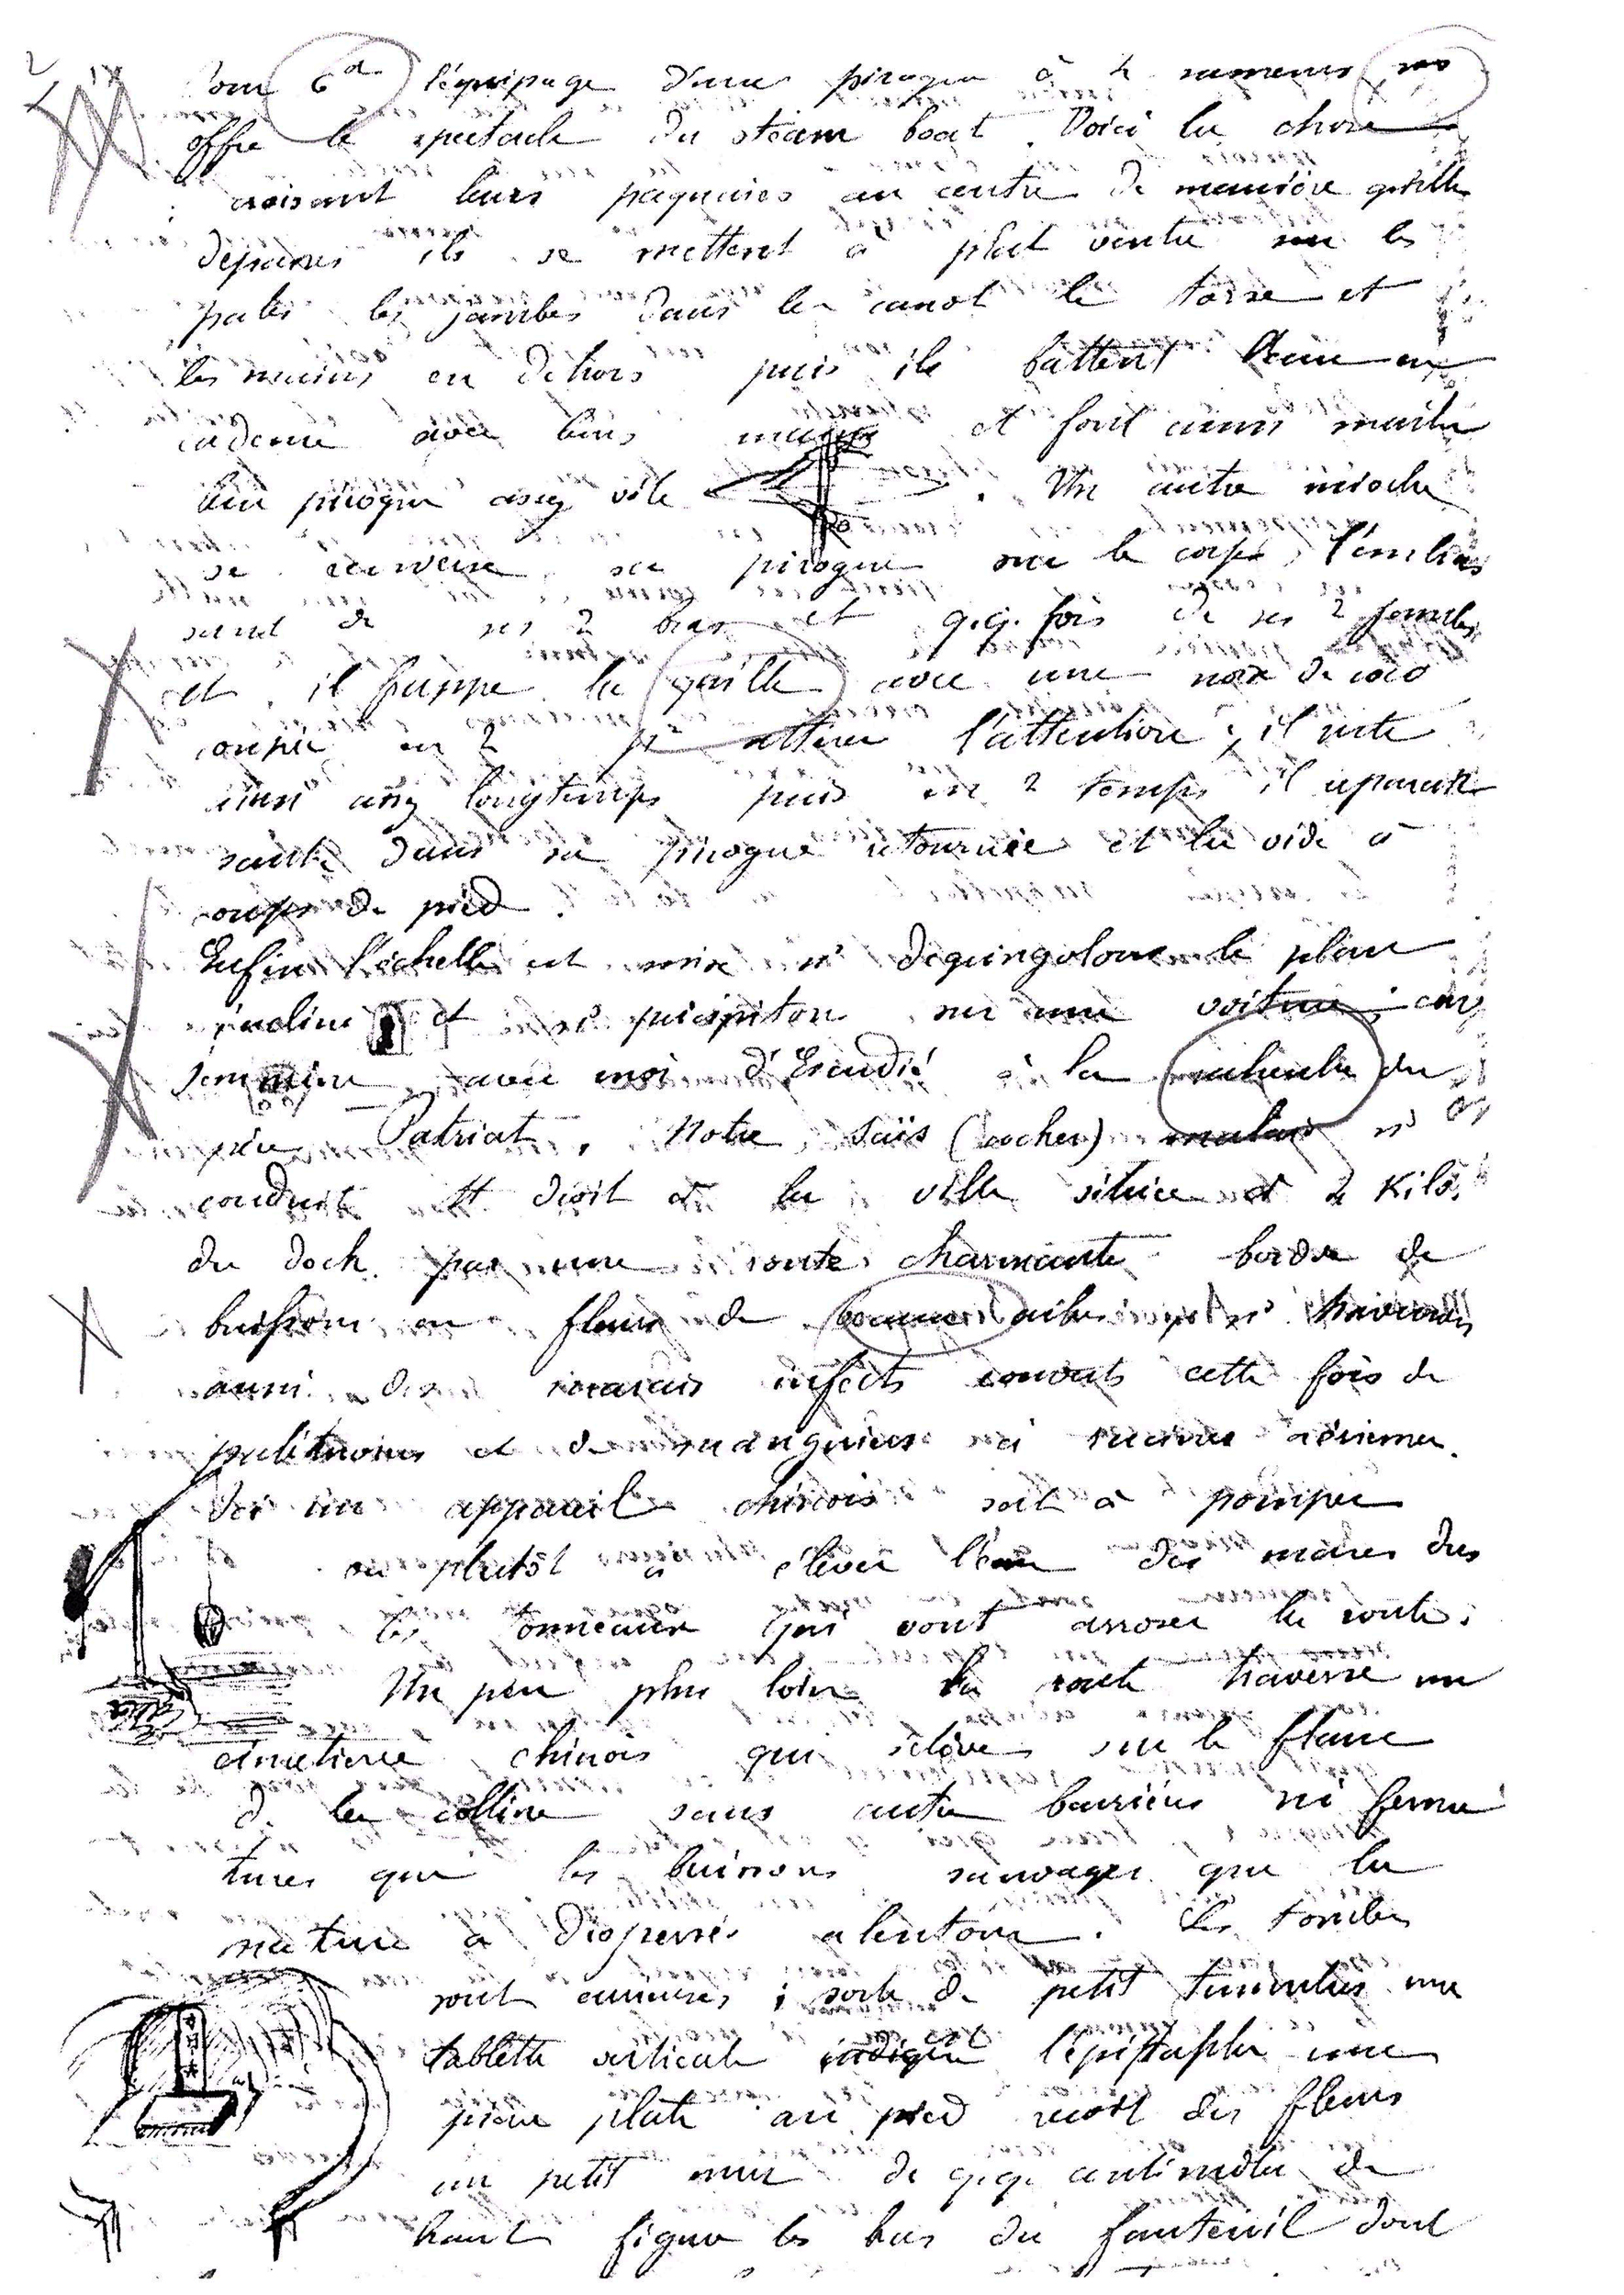 Pour 6d l'équipage d'une pirogue à 4 rameurs nous
offre le spectacle du steam boat. Voici la chose
croisant leurs pagaies au centre de manière qu'elles
dépassent ils se mettent à plat ventre sur les
pales les jambes dans le canot le torse et
les mains en dehors puis ils battent l'eau en
cadence avec leurs mains et font ainsi marcher
leur pirogue assez vite. Un autre mioche
se renverse sa pirogue sur le corps, l'embras
sant de ses 2 bras et q.q. fois de ses 2 jambes
et il frappe la quille avec une noix de coco
coupée en 2 pr attirer l'attention; il reste
ainsi assez longtemps puis en 2 temps il reparait
saute dans sa pirogue retournée et la vide à
coups de pied.
Enfin l'échelle est mise ns dégringolons le plan
incliné et ns précipitons sur une voiture; car
j'emmène avec moi d'Escudié à la recherche du
père Patriat. Notre Saïs (cocher) malais ns
conduit tt droit à la ville située à 4 Kilo.
du dock par une route charmante bordée de
buissons en fleurs de arbres ns traversons
aussi des marais infects couverts cette fois de
palétuviers et de manguiers à racines aériennes.
Ici un appareil chinois sert à pomper
ou plutôt à élever l'eau des mares ds
les tonneaux qui vont arroser la route.
Un peu plus loin la route traverse un
cimetière chinois qui s'élève sur le flanc
de la colline sans autre barrières ni ferme
tures que les buissons sauvages que la
nature a dispersés alentour. Les tombes
sont curieuses; sorte de petit tumulus une
tablette verticale indique l'épitaphe une
pierre plate au pied reçoit des fleurs
un petit mur de q.q. centimètres de
haut figure les bras du fauteuil dont